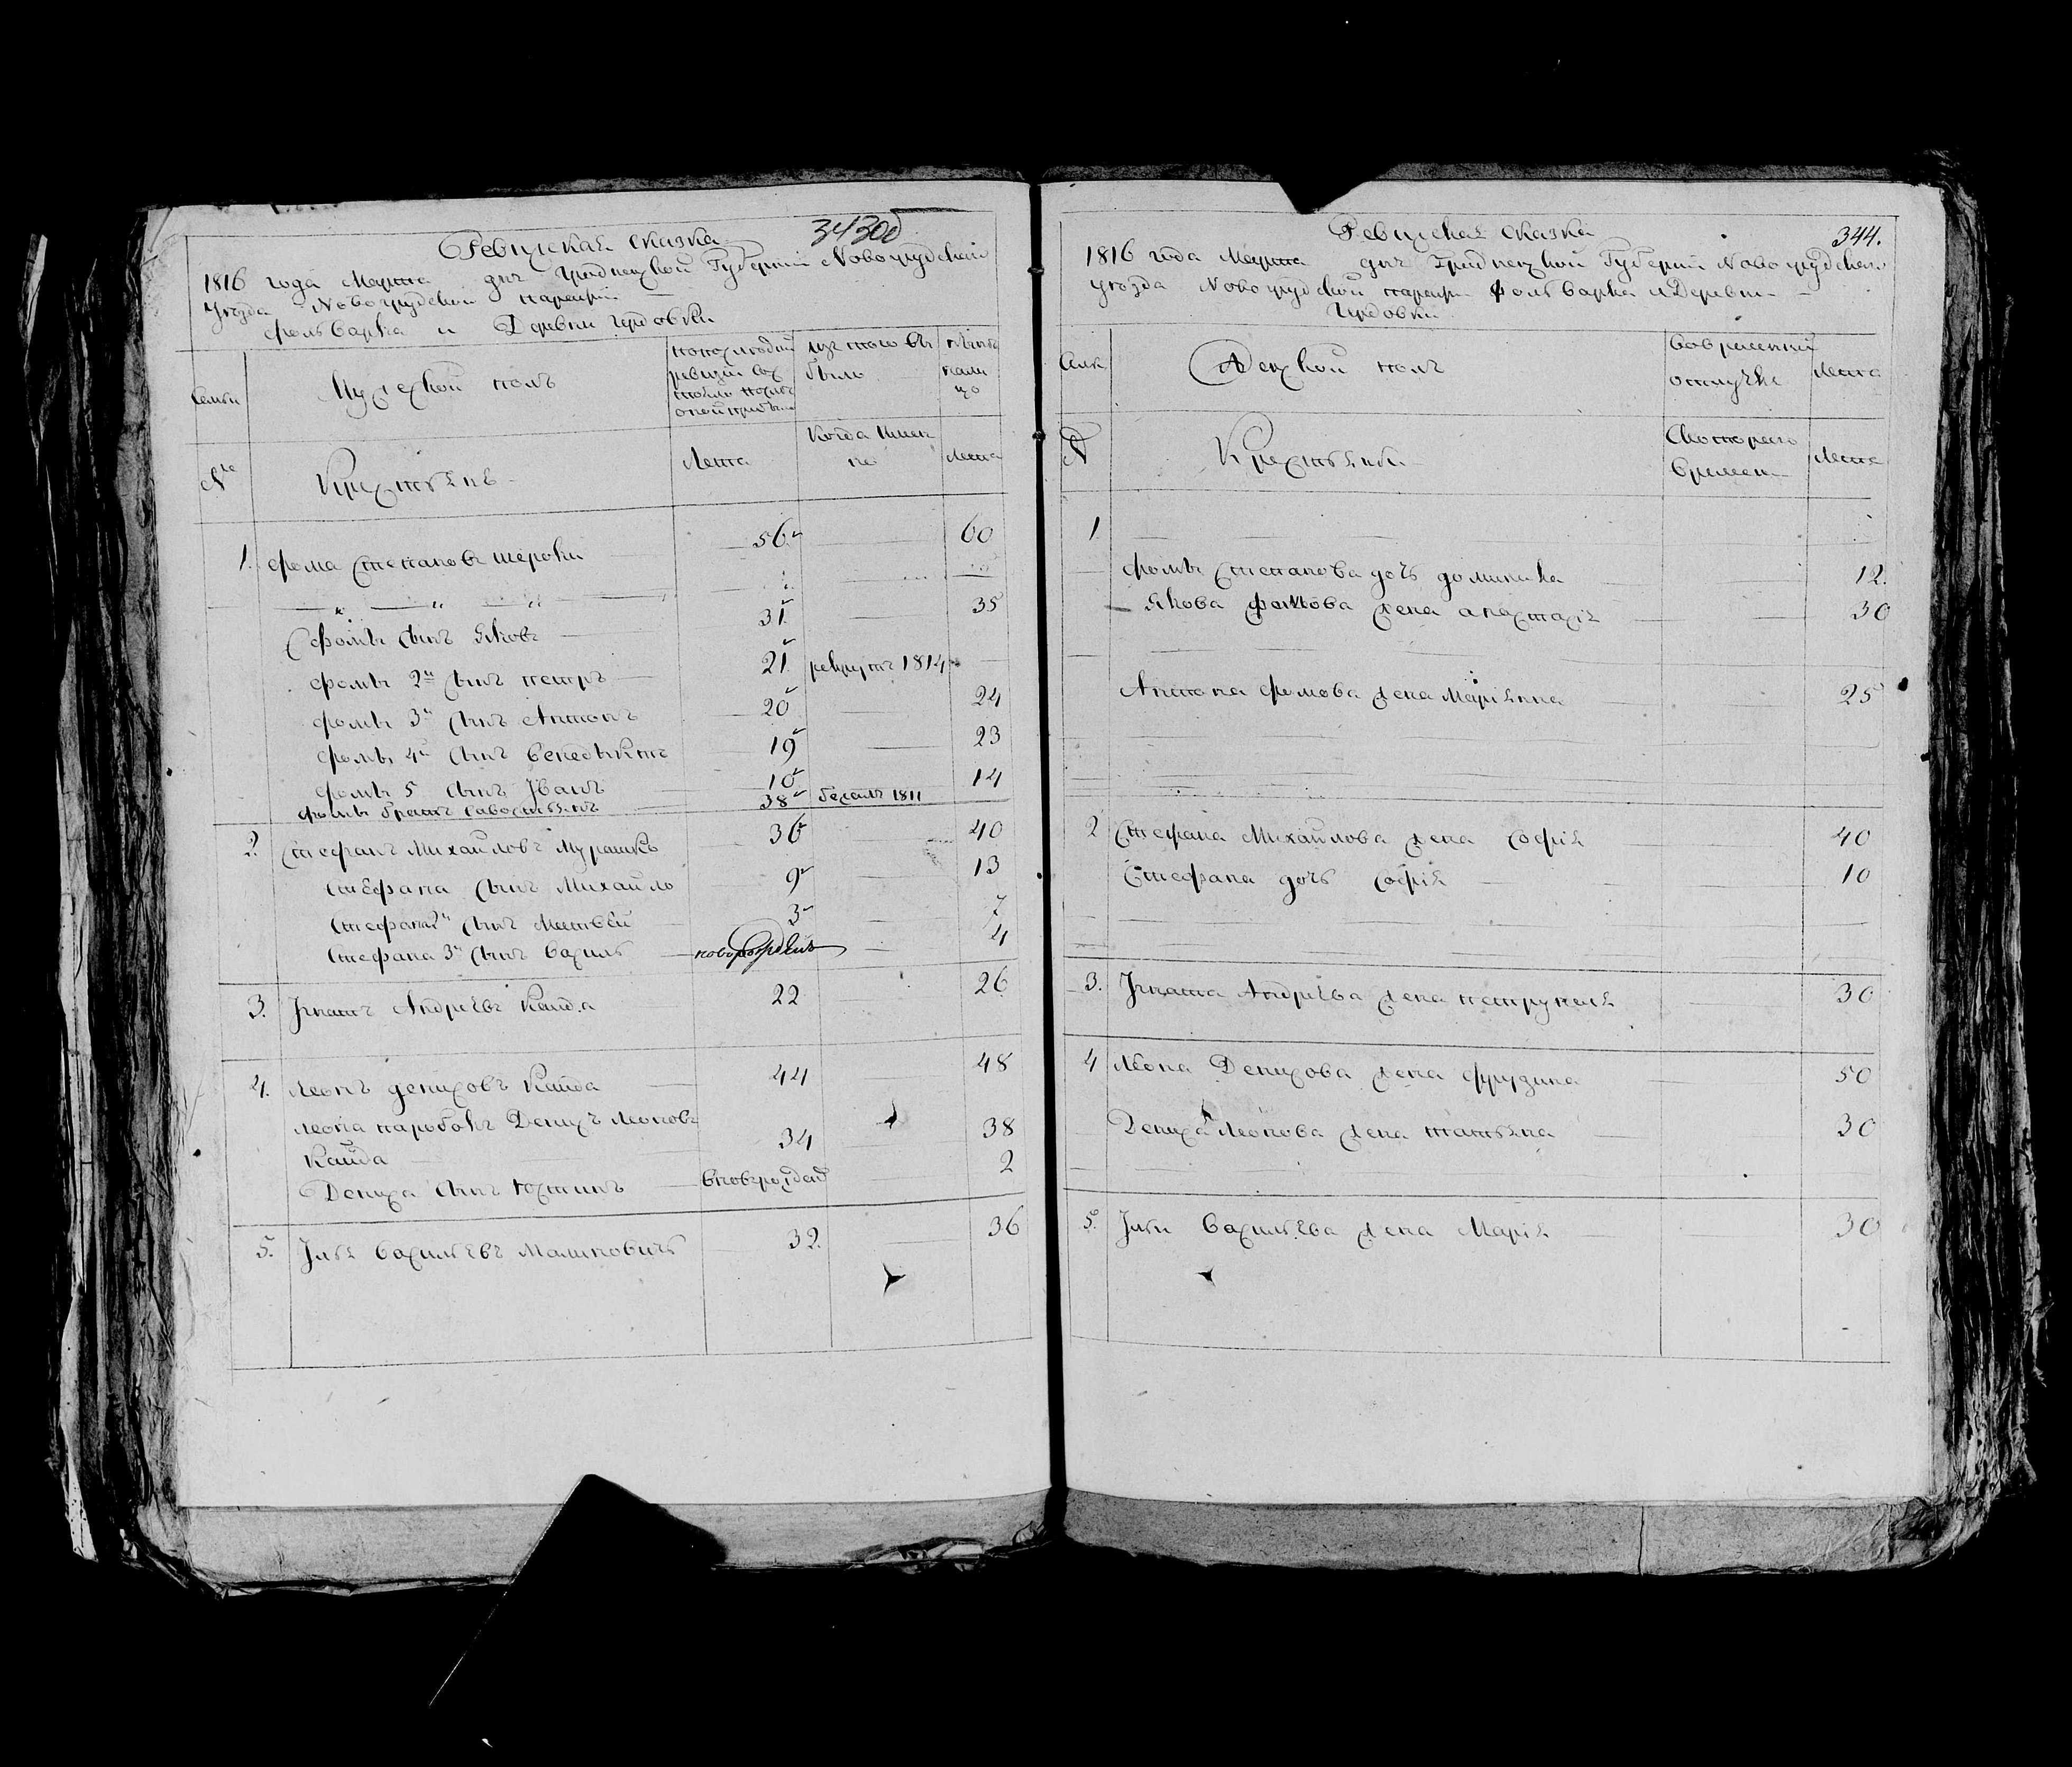 Ревизская сказка
34300
1816 года Марта дня Гродненской Губернии Новогрудскаго
уезда Новогрудской парафии
фольварка и Деревни
Семьи
Мужеской полъ
по последней
ревизии сос
тояло и после
оной прибыло
изъ того вы
было
ныне
нали
цо
№
Крестьянъ
Лета
Когда имен
но
Лета
1. Фома Степановъ 56 60
Фомы сынъ Яковъ 31 35
Фомы 2й сынъ Петръ 21 рекрутъ 1814
Фомы 3й сынъ Антонъ 20 24
Фомы 4й сынъ Бенедыктъ 19 23
Фомы 5 сынъ Іванъ 10 14
Фомы братъ Савостьянъ 38 бежалъ 1811
2. Стефанъ Михайловъ Мурашко 36 40
Стефана сынъ Михайло 9 13
Стефана 2й сынъ Матвей 3 7
Стефана 3й сынъ Василь новорожденъ 4
3. Ігнатъ Андреевъ Кайда 22 26
4. Леонъ Денисовъ Кайда 44 48
Леона паробокъ Денисъ Леоновъ
Кайда 34 38
Дениса сынъ Юстинъ вновьрожден 2
5. Ілья Васильевъ Малиновичъ 32 36
Ревизская сказка
344.
1816 года Марта дня Гродненской Губернии Новогрудскаго
уезда Новогрудской парафии Фольварка и Деревни
Семьи
Женской полъ
Во временной
отлучке
Лета
№
Крестьянки
Съ котораго
времени
Лета
1
Фомы Степанова дочь Доминика 12.
Якова Фомова жена Анастасія 30
Антона Фомова жена Маріянна 25
2 Стефана Михайлова жена Софія 40
Стефана дочь Софія 10
3. Ігната Андреева жена Петрунеля 30
4 Леона Денисова жена 50
Дениса Леонова жена Татьяна 30
5. Ільи Васильева жена Марія 30